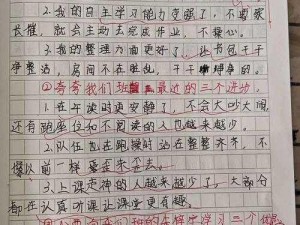 2.我的自主学习能力变强了，不要家
长催，就会主动去完成作业，不操心。
3.我的整理力面更好了，让书包干干
净整洁，房间不在脏乱，干干净净的。
②夸夸我们班最近的三个进步。
1.在午读时更安静了，不会大吵大闹，
还有跑座位和不阅读的人也越来越少。
2.队伍也在跑操时站在整整齐齐，不
像以前一样歪歪来歪去。
3.上课走神的人越来越少了，大部分
都在认真听课让课堂更有趣。